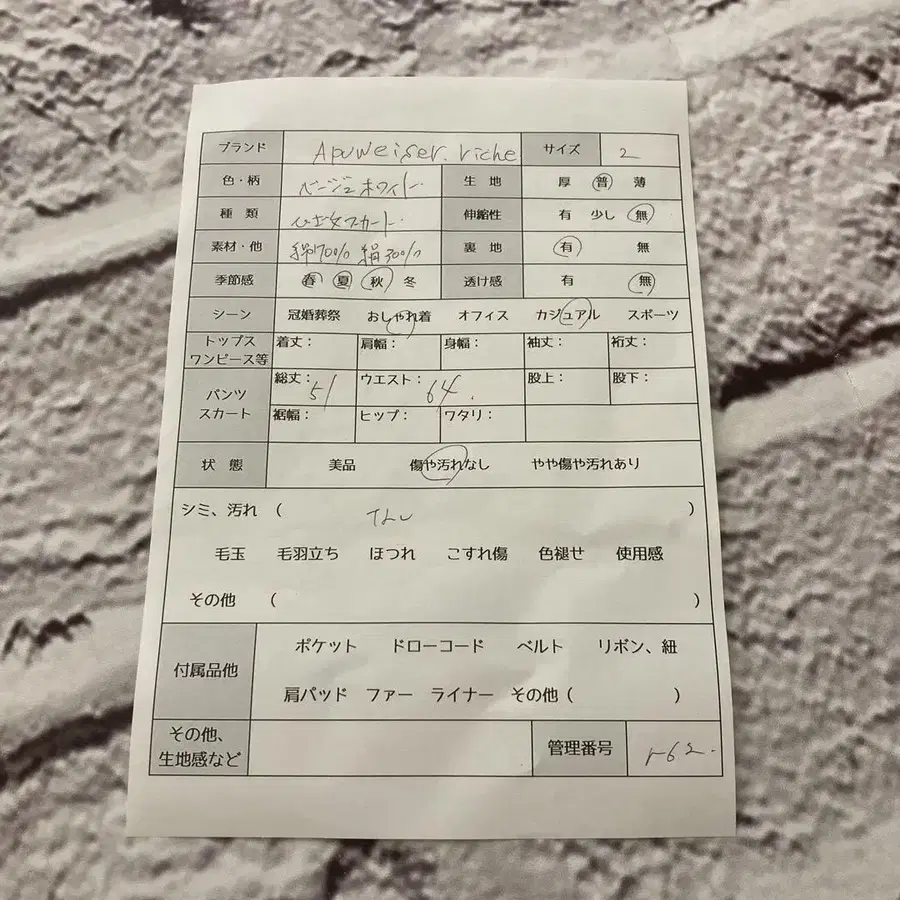 ブランド Apuweiser.riche サイズ 2
色・柄 ベージュホワイト. 生地 厚 普 薄
種類 ひざ丈スカート. 伸縮性 有 少し 無
素材・他 綿70% 絹30% 裏地 有 無
季節感 春 夏 秋 冬 透け感 有 無
シーン 冠婚葬祭 おしゃれ着 オフィス カジュアル スポーツ
トップス
ワンピース等 着丈: 肩幅: 身幅: 袖丈: 裄丈:
パンツ
スカート 総丈: 51 ウエスト: 64. 股上: 股下:
裾幅: ヒップ: ワタリ:
状態 美品 傷や汚れなし やや傷や汚れあり
シミ、汚れ ( なし )
毛玉 毛羽立ち ほつれ こすれ傷 色褪せ 使用感
その他 ( )
付属品他 ポケット ドローコード ベルト リボン、紐
肩パッド ファー ライナー その他 ( )
その他、
生地感など 管理番号